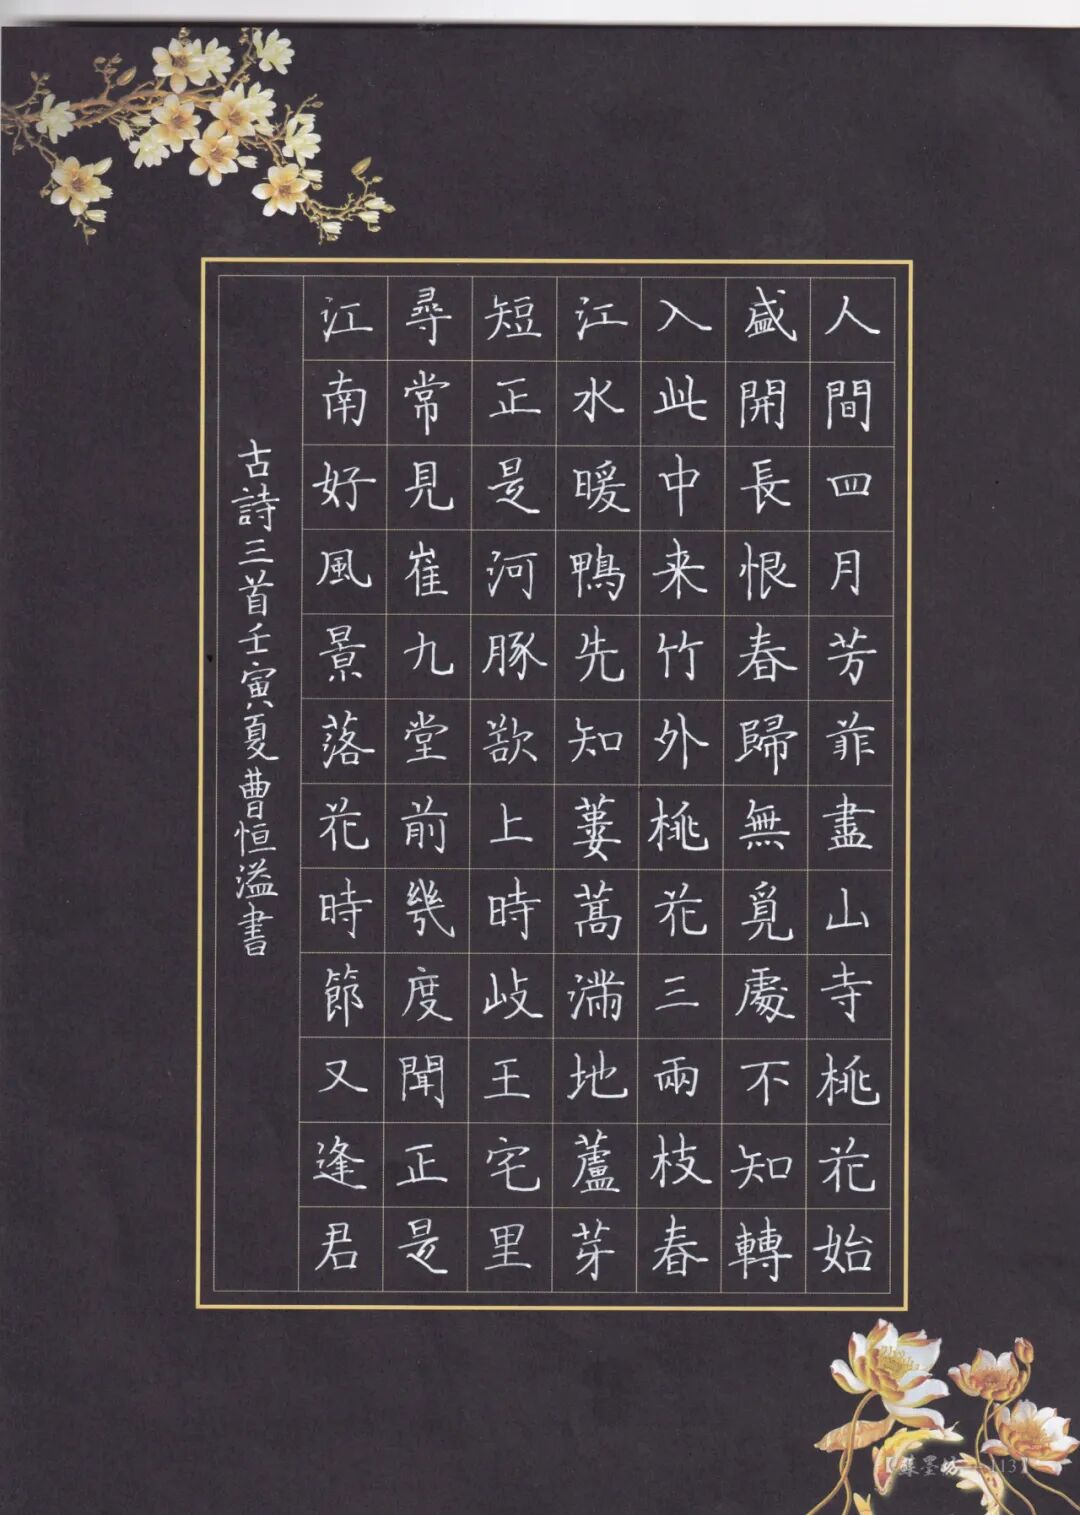 人間四月芳菲盡山寺桃花始
盛開長恨春歸無覓處不知轉
入此中来竹外桃花三兩枝春
江水暖鴨先知蔞蒿滿地蘆芽
短正是河豚欲上時岐王宅里
尋常見崔九堂前幾度聞正是
江南好風景落花時節又逢君
古詩三首壬寅夏曹恒溢書